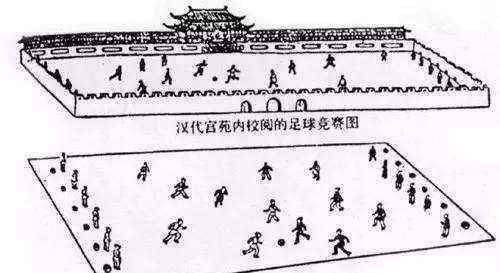 汉代宫苑内校阅的足球竞赛图